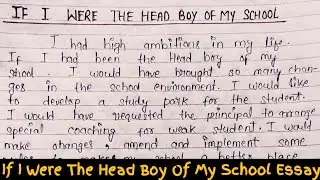 IF I WERE THE HEAD BOY OF MY SCHOOL
I had high ambitions in my life.
If I had been the Head boy of my
school I would have brought so many chan-
ges in the school environment. I would like
to develop a study park for the student.
I would have requested the principal to arrange
special coaching for weak student. I would
make changes, amend and implement some
If I Were The Head Boy Of My School Essay